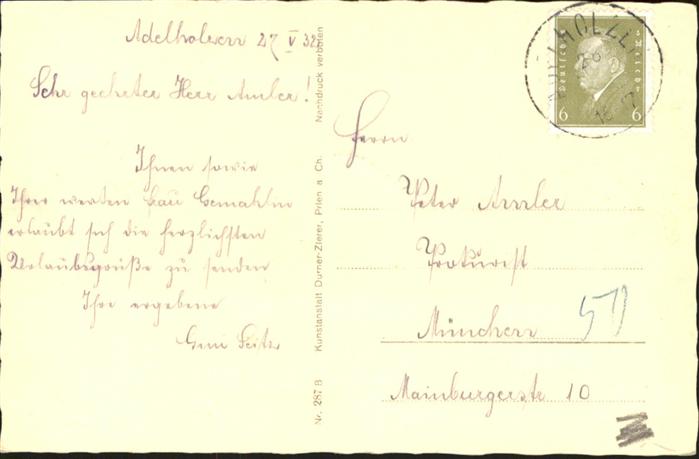 Adelholzen 27 V 32
Sehr geehrter Herr Amler!
Ihnen sowie
Ihrer werten Frau Gemahlin
erlaubt sich die herzlichsten
Urlaubsgrüße zu senden
Ihre ergebene
Seitz
Nr. 287 B Kunstanstalt Durner-Zierer, Prien a. Ch. Nachdruck verboten
Deutsches Reich
6 6
Herrn
Peter Amler
Prokurist
München
Mainburgerstr 10